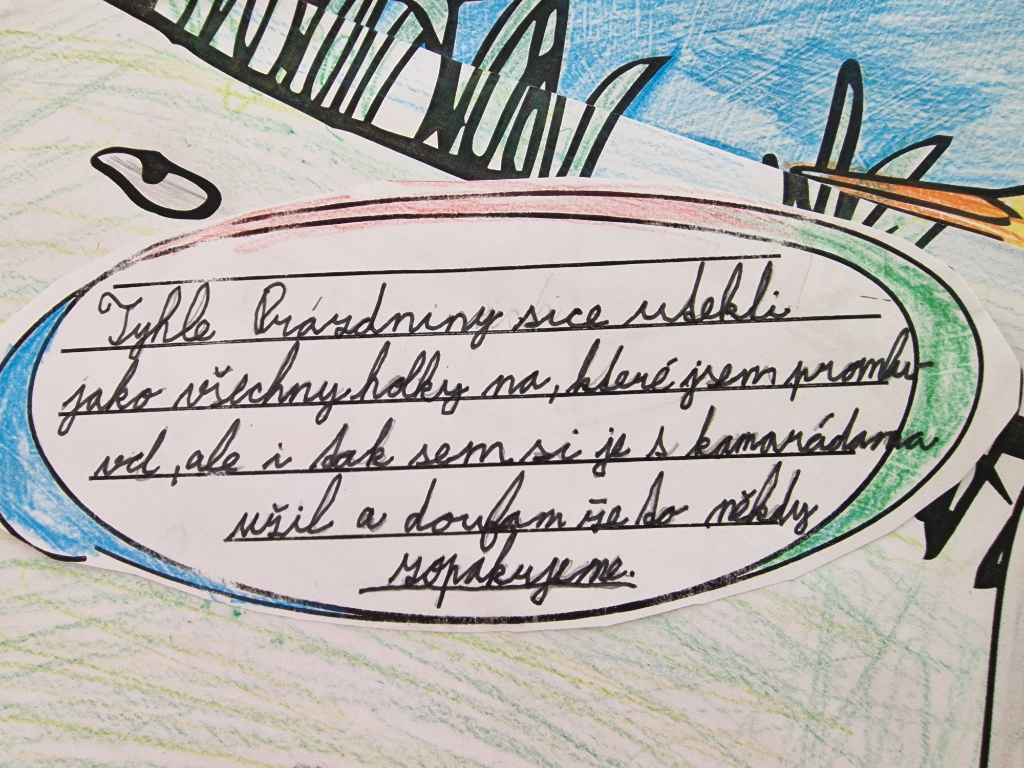 Tyhle Prázdniny sice utekli
jako všechny holky na, které jsem promlu-
vil, ale i tak sem si je s kamarádama
užil a doufam že to někdy
zopakujeme.